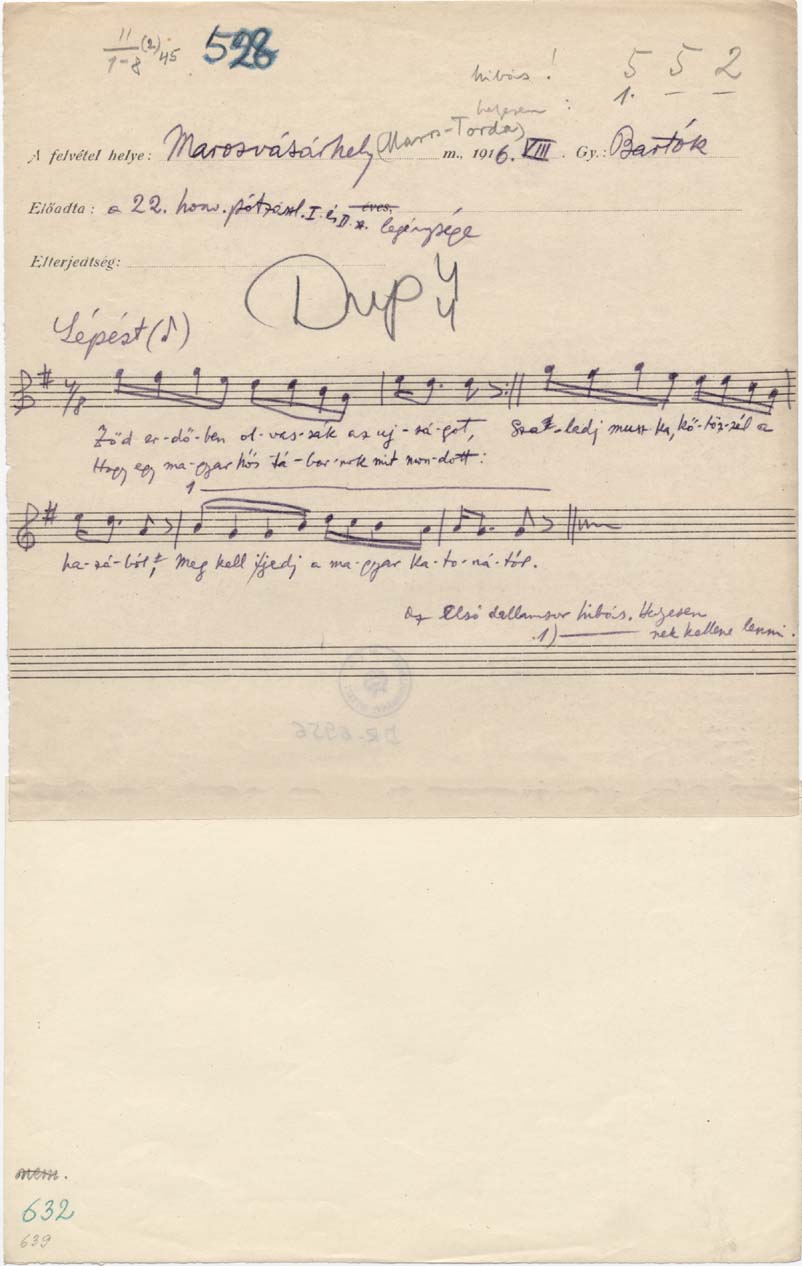 11 (2) 45 528
1-8
hibás! 5 5 2
helyesen: 1. - -
A felvétel helye: Marosvásárhely (Maros-Torda) m., 1916. VIII. Gy.: Bartók
Előadta: a 22. honv. I. és II. éves legénysége
Elterjedtség:
Dup
Lépést (♪)
4/8
Zöd er-dő-ben ol-vas-sák az uj-sá-got, Sza-ladj musz-ka, kö-töz-zél a
Hogy egy ma-gyar hős tá-bor-nok mit mon-dott:
1
ha-zá-ból, Meg kell ijjedj a ma-gyar ka-to-ná-tól.
Az Első dallamsor hibás. Helyesen
1) nek kellene lenni.
DR-6956
nem.
632
639